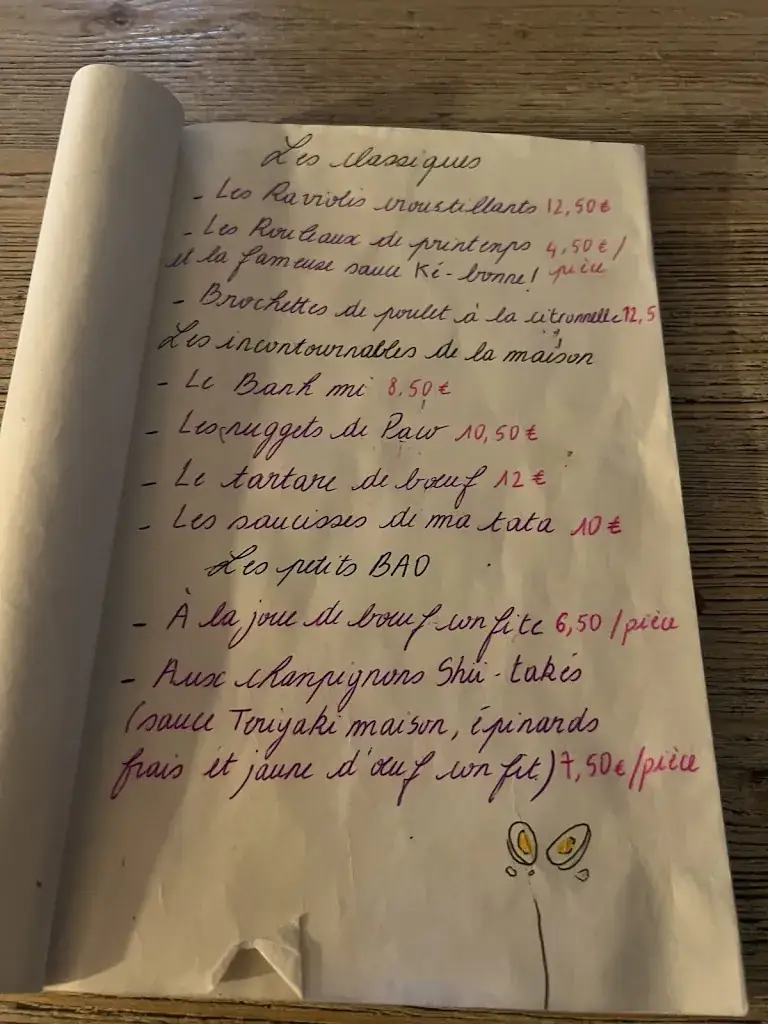 Les classiques
- Les Raviolis croustillants 12,50€
- Les Rouleaux de printemps 4,50€/
et la fameuse sauce Ké-bonne! pièce
- Brochettes de poulet à la citronnelle 12,5
Les incontournables de la maison
- Le Banh mi 8,50€
- Les nuggets de Paw 10,50€
- Le tartare de bœuf 12€
- Les saucisses de ma tata 10€
Les petits BAO
- À la joue de bœuf confite 6,50/pièce
- Aux champignons Shii-takés
(sauce Teriyaki maison, épinards
frais et jaune d'œuf confit) 7,50€/pièce